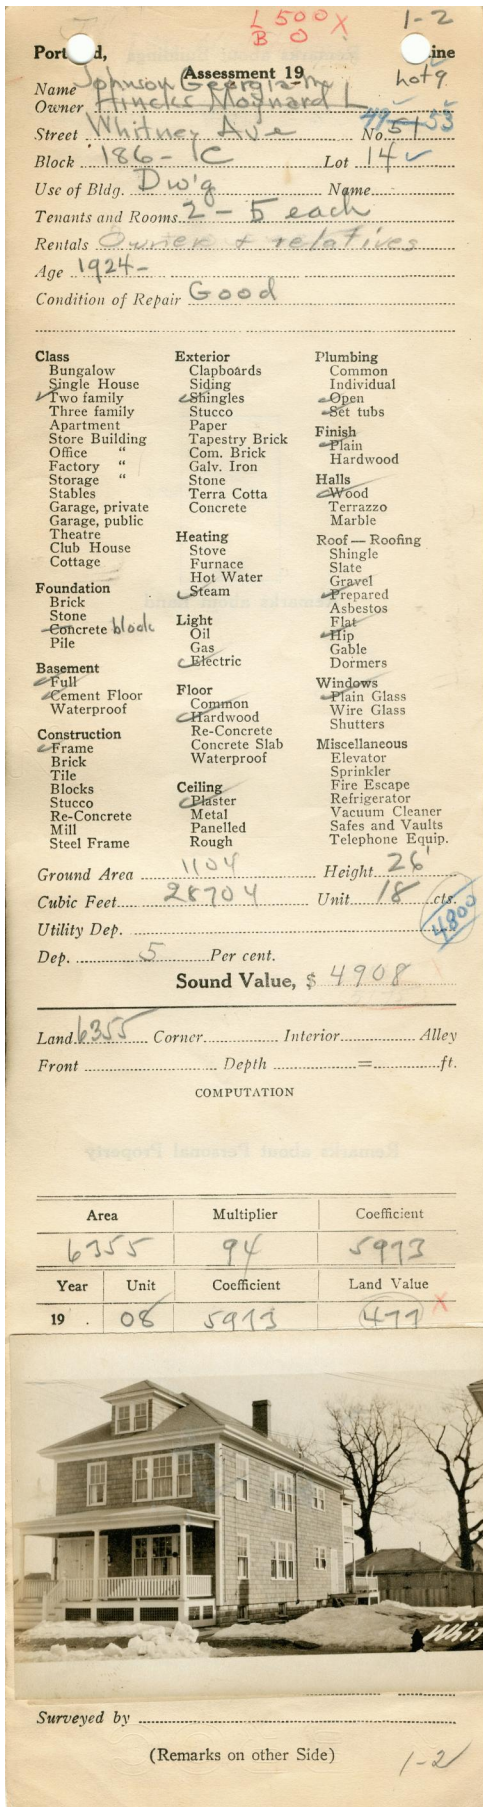 L 500 X
B 0
1-2
Assessment 19
Lot 9
Name Johnson Georgia M
Owner Hincks Maynard L
Street Whitney Ave No. 51 49 53
Block 186-1C Lot 14
Use of Bldg. Dw'g Name
Tenants and Rooms 2 - 5 each
Rentals Owner & relatives
Age 1924-
Condition of Repair Good
Class
Bungalow
Single House
Two family
Three family
Apartment
Store Building
Office "
Factory "
Storage "
Stables
Garage, private
Garage, public
Theatre
Club House
Cottage
Foundation
Brick
Stone
Concrete block
Pile
Basement
Full
Cement Floor
Waterproof
Construction
Frame
Brick
Tile
Blocks
Stucco
Re-Concrete
Mill
Steel Frame
Exterior
Clapboards
Siding
Shingles
Stucco
Paper
Tapestry Brick
Com. Brick
Galv. Iron
Stone
Terra Cotta
Concrete
Heating
Stove
Furnace
Hot Water
Steam
Light
Oil
Gas
Electric
Floor
Common
Hardwood
Re-Concrete
Concrete Slab
Waterproof
Ceiling
Plaster
Metal
Panelled
Rough
Plumbing
Common
Individual
Open
Set tubs
Finish
Plain
Hardwood
Halls
Wood
Terrazzo
Marble
Roof — Roofing
Shingle
Slate
Gravel
Prepared
Asbestos
Flat
Hip
Gable
Dormers
Windows
Plain Glass
Wire Glass
Shutters
Miscellaneous
Elevator
Sprinkler
Fire Escape
Refrigerator
Vacuum Cleaner
Safes and Vaults
Telephone Equip.
Ground Area 1104 Height 26'
Cubic Feet 28704 Unit 18 cts.
4800
Utility Dep.
Dep. 5 Per cent.
Sound Value, $ 4908
Land 6355 Corner Interior Alley
Front Depth = ft.
COMPUTATION
Area Multiplier Coefficient
6355 94 5973
Year Unit Coefficient Land Value
19 . 08 5973 477 X
Whi
Surveyed by
(Remarks on other Side)
1-2